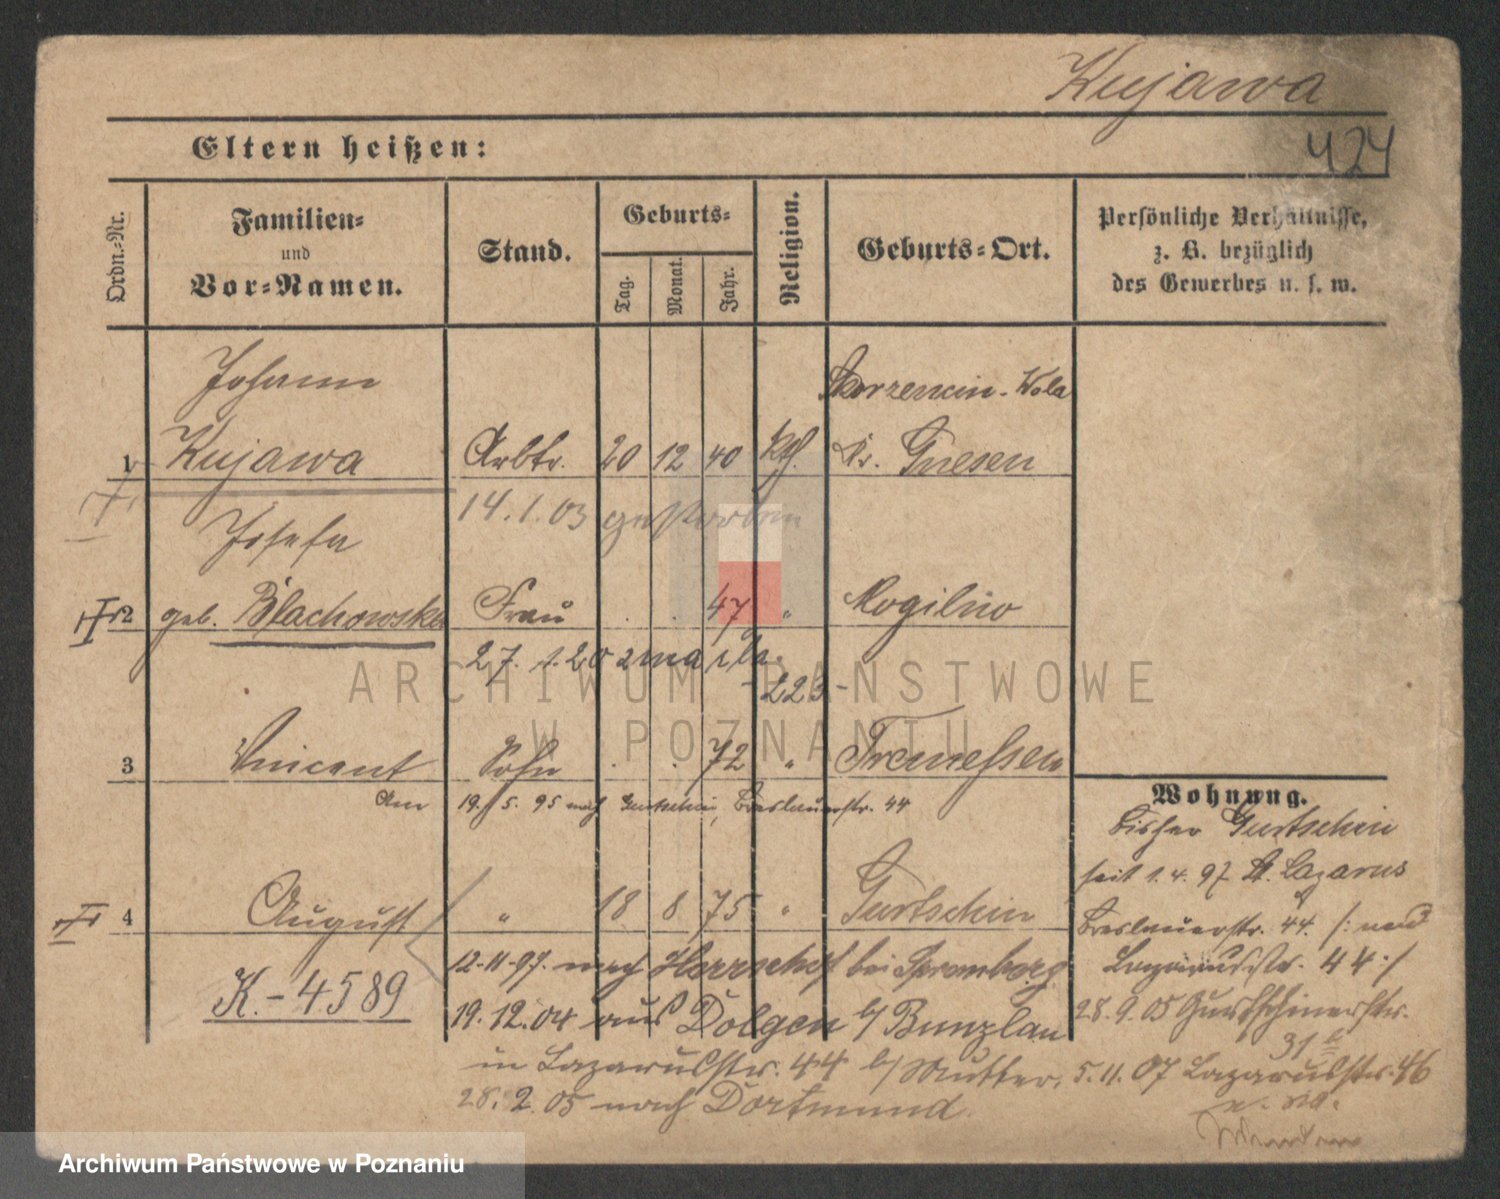 Kujawa
424
Eltern heißen:
Ordn.-Nr.
Familien-
und
Vor-Namen.
Stand.
Geburts-
Tag.
Monat.
Jahr.
Religion.
Geburts-Ort.
Persönliche Verhältnisse,
z. B. bezüglich
des Gewerbes u. s. w.
Johann
Skorzencin-Wola
1 Kujawa Arbtr. 20 12 40 kth. Kr. Gnesen
14.1.03 gestorben
Josefa
2 geb. Blachowska Frau . . 47 " Mogilno
27. 1. 20 zmarła
-223-
3 Vincent Sohn . . 72 " Tremessen
Am 19. 5. 95 nach Gurtschin, Breslauerstr. 44
4 August " 18 8 75 " Gurtschin
12-11-97. nach Herrschaft bei Spremberg
K.-4589
19.12.04 aus Dolgen b/ Bunzlau
in Lazarusstr. 44 b/ Mutter.
28.2.05 nach Dortmund.
Wohnung.
bisher Gurtschin
seit 1.4.97 St. Lazarus
Breslauerstr. 44. /: neu
Lazarusstr. 44 :/
28.9.05 Gurtschinerstr.
31
5.11.07 Lazarusstr. 46
ARCHIWUM PAŃSTWOWE
W POZNANIU
Archiwum Państwowe w Poznaniu